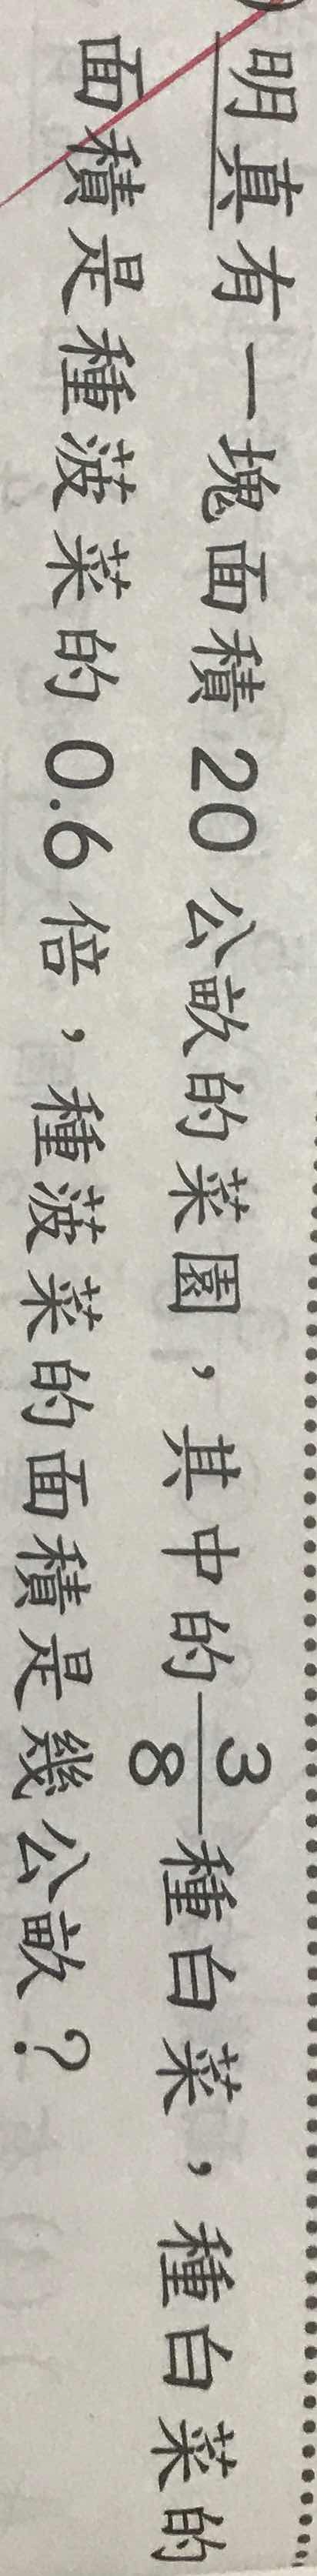 明真有一塊面積20公畝的菜園，其中的3/8種白菜，種白菜的
面積是種菠菜的0.6倍，種菠菜的面積是幾公畝？